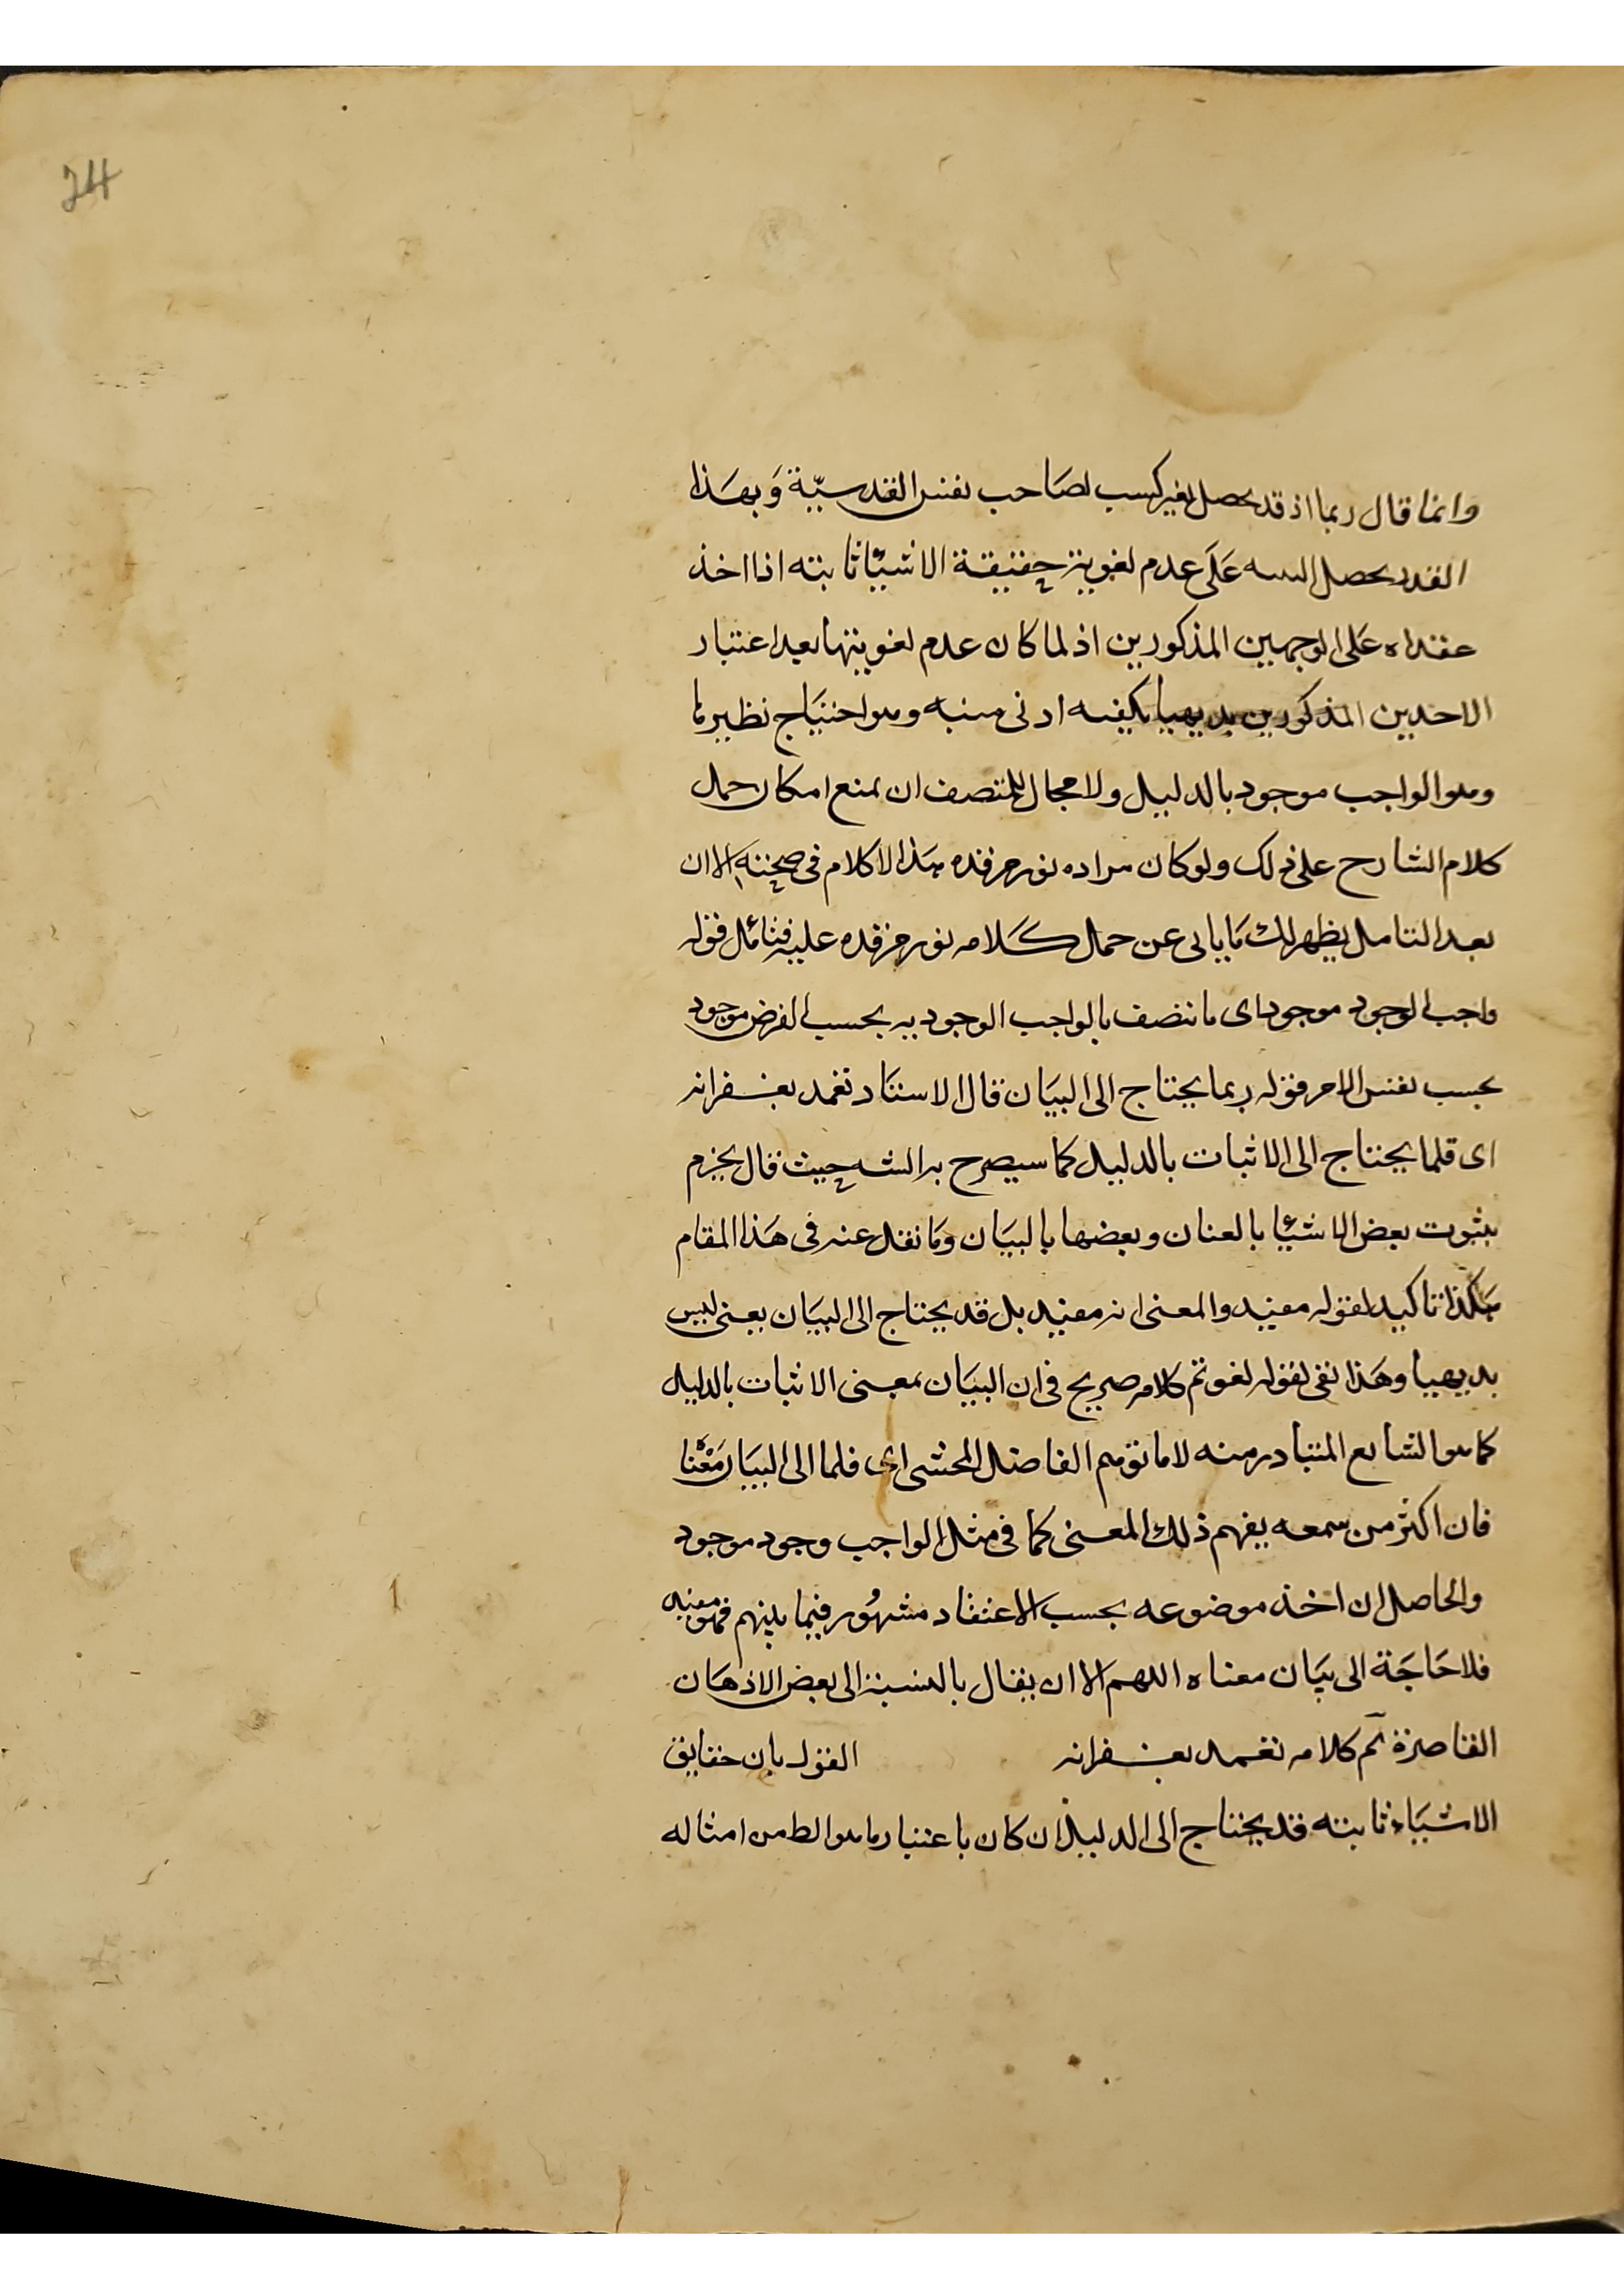 24
وانما قال ربما اذ قد يحصل بغير كسب لصاحب نفس القدسيّة وَبهَذا
القدر يحصل عَلَى عدم لغوية حقيقة الاشيّا ثابته اذا اخذ
عقداه عَلى الوجهين المذكورين اذ لما كان عدم لغويتها بعد اعتبار
الاخذين المذكورين بديهيا يكفيه ادنى منبه وهو احتيَاج نظيرها
وهو الواجب موجود بالدليل ولا مجال للمتصف ان يمنع امكان حمل
كلام الشارح على ذلك ولو كان مراده نور مرقده هذا لا كلام في صحته الا ان
بعد التامل يظهر لك مَا يابى عن حمل كَلامه نور مرقده عليه فتامّل قوله
واجب الوجود موجود اى ما نتصف بالواجب الوجود به بحسب الفرض موجود
بحسب نفس الامر قوله ربما يحتاج الى البيَان قال الاستَاد تغمد بغفرانه
اى قلما يحتاج الى الاثبات بالدليل كما سيصرح به الشه حيث قال يجزم
بثبوت بعض الاشيّا بالعنان وبعضها بالبيَان وَما نقل عنه فى هَذا المقام
هَكذا تاكيد لقوله مفيد والمعنى انه مفيد بل قد يحتاج الى البيَان يعنى ليس
بديهيا وهَذا نفى لقوله لغو تم كلامه صريح فى ان البيَان بمعنى الاثبات بالدليل
كما هو الشايع المتبادر منه لا ما توهم الفاضل المحشى اى قلما الى البيَان مَعْنا
فان اكثر من سمعه يفهم ذلك المعنى كما فى مثل الواجب وجود موجود
والحاصل ان اخذ موضوعه بحسب الاعتقاد مشهُور فيما بينهم فهو مفيد
فلا حَاجَة الى بيَان معناه اللهم الا ان يقال بالنسبة الى بعض الاذهَان
القاصرة تم كلامه تغمد بغفرانه القول بان حقايق
الاشيَاء ثابته قد يحتاج الى الدليل ان كان باعتبار ما هو الط من امثاله